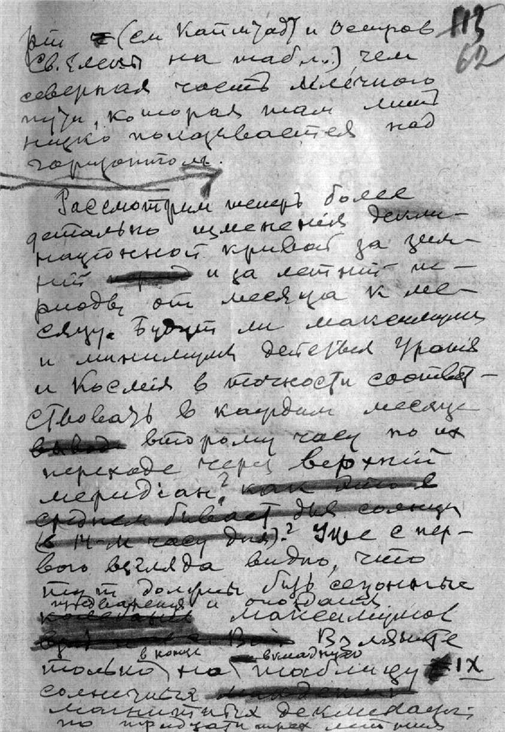 113
62
(см Капштадт и Остров
Св. Елены на табл.) чем
северная часть млечного
пути, которая там лишь
низко показывается над
горизонтом.
Рассмотрим теперь более
детально изменения декли-
национной кривой за зим-
ний и за летний пе-
риоды от месяца к ме-
сяцу. Будут ли максимумы
и минимумы действия Урания
и Космея в точности соответ-
ствовать в каждом месяце
второму часу по их
переходе через верхний
меридиан? как это в
среднем бывает для солнца
)? Уже с пер-
вого взгляда видно, что
тут должны быть сезонные
предварения и опоздания
максимумов
Взгляните
в конце выкладную
только на таблицу IX
солнечных
магнитных деклинаций
по тридцати трех летним